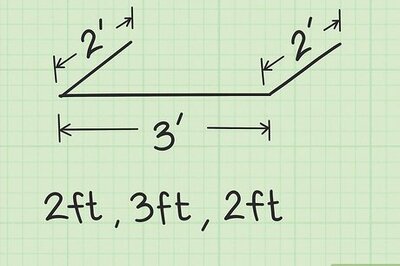 2' 2'
3'
2ft, 3ft, 2ft